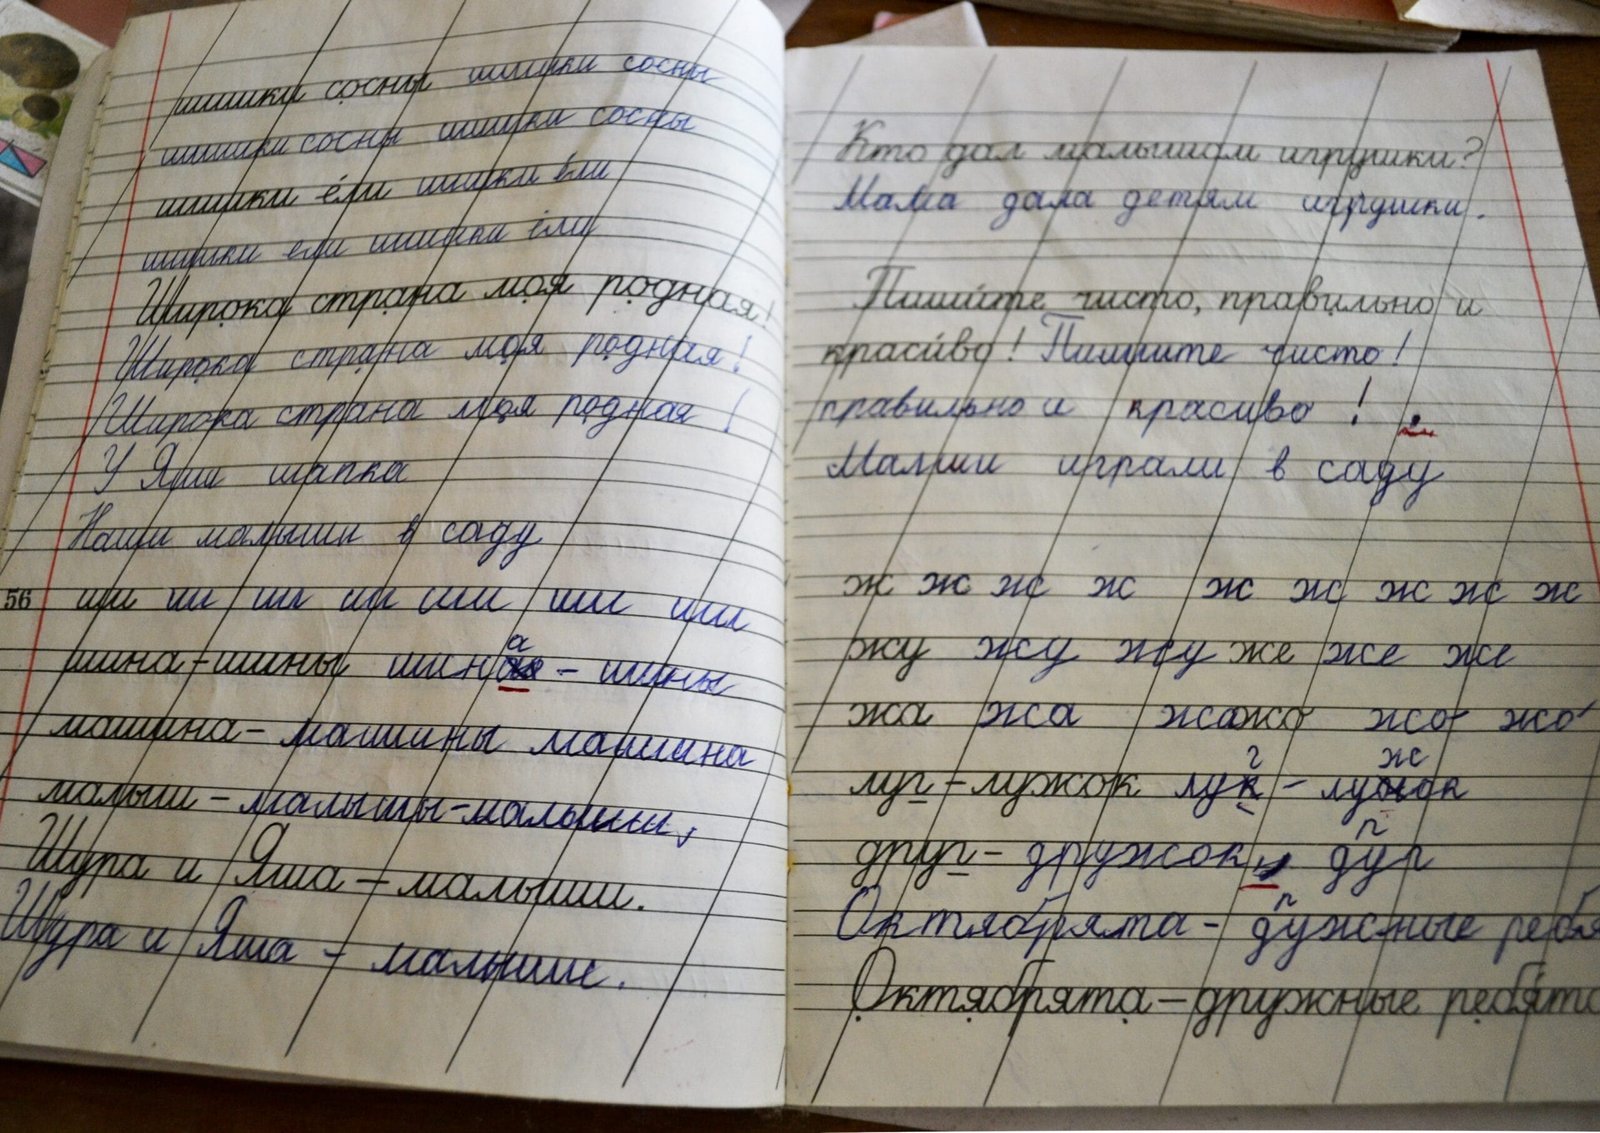 шишки сосны шишки сосны
шишки сосны шишки сосны
шишки ели шишки ели
шишки ели шишки ели
Широка страна моя родная!
Широка страна моя родная!
Широка страна моя родная!
У Яши шапка
Наши малыши в саду
56 ши ши ши ши ши ши ши
шина-шины шина - шины
машина-машины машина
малыш-малыши-малыши,
Шура и Яша - малыши.
Шура и Яша - малыши.
Кто дал малышам игрушки?
Мама дала детям игрушки.
Пишите чисто, правильно и
красиво! Пишите чисто!
правильно и красиво!
Малши играли в саду
ж ж ж ж ж ж ж ж ж
жу жу жу же же же
жа жа жажо жо жо
луг-лужок луг-лужок
друг-дружок, друг
Октябрята- дружные ребя
Октябрята-дружные ребята